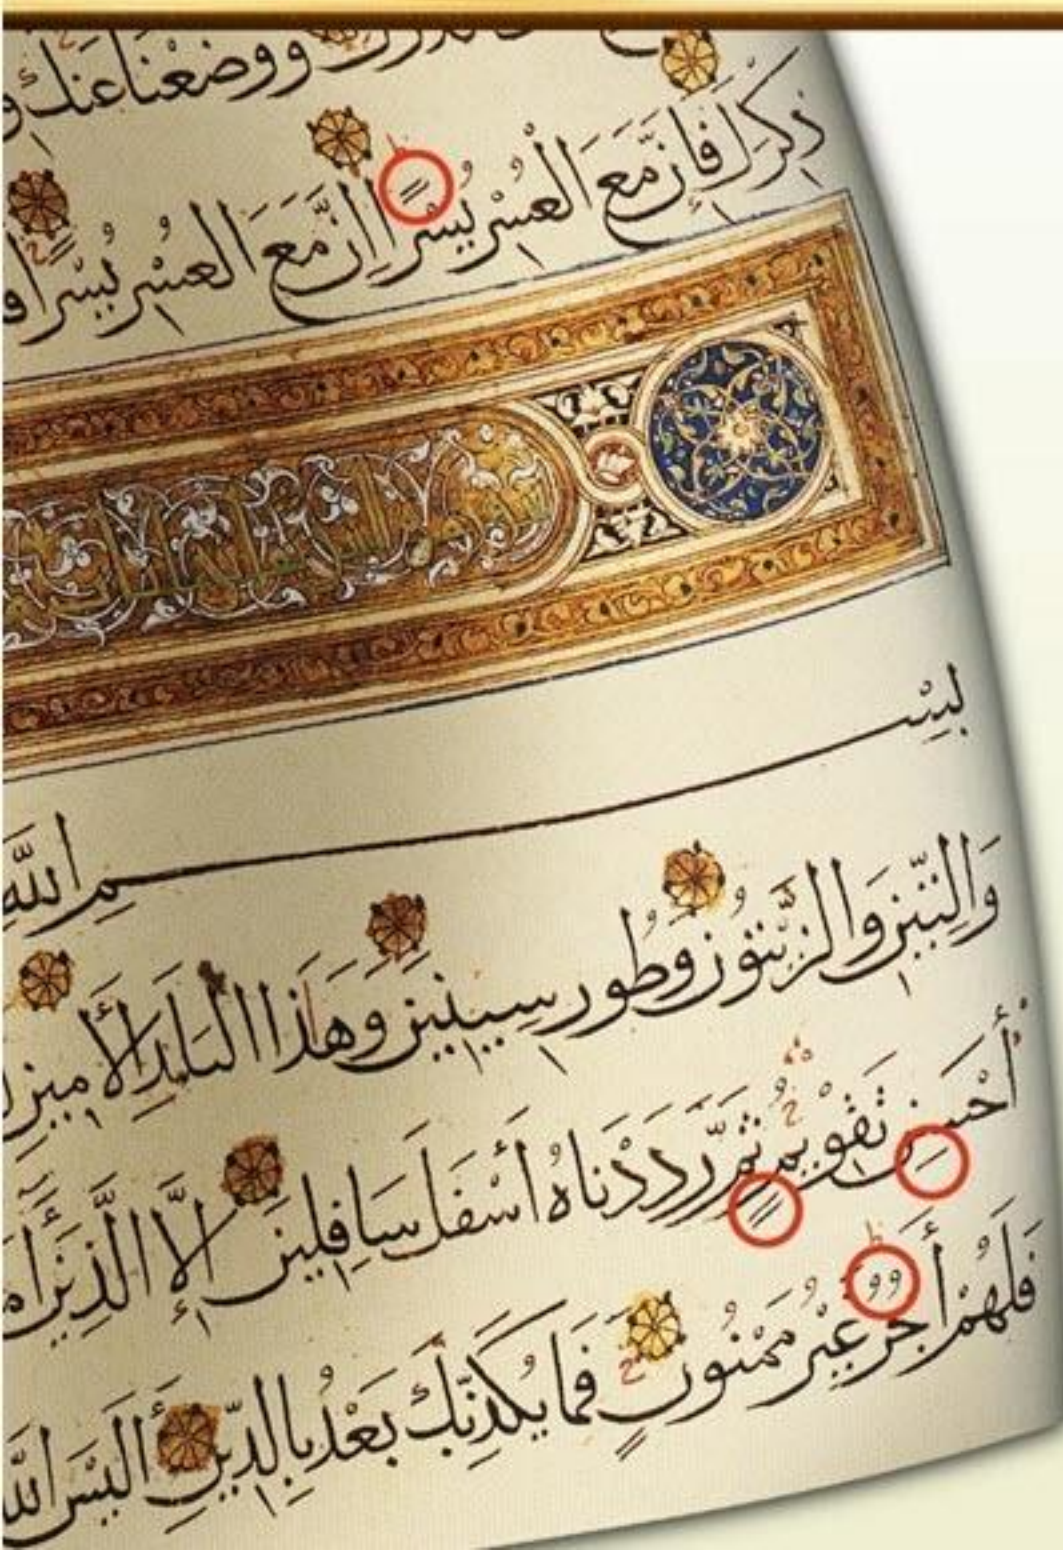 ووضعنا عنك و
ذكرك فإن مع العسر يسرا إن مع العسر يسرا ف
بسم الله
والتين والزيتون وطور سينين وهذا البلد الأمين ل
أحسن تقويم ثم رددناه أسفل سافلين إلا الذين آم
فلهم أجر غير ممنون فما يكذبك بعد بالدين أليس الله